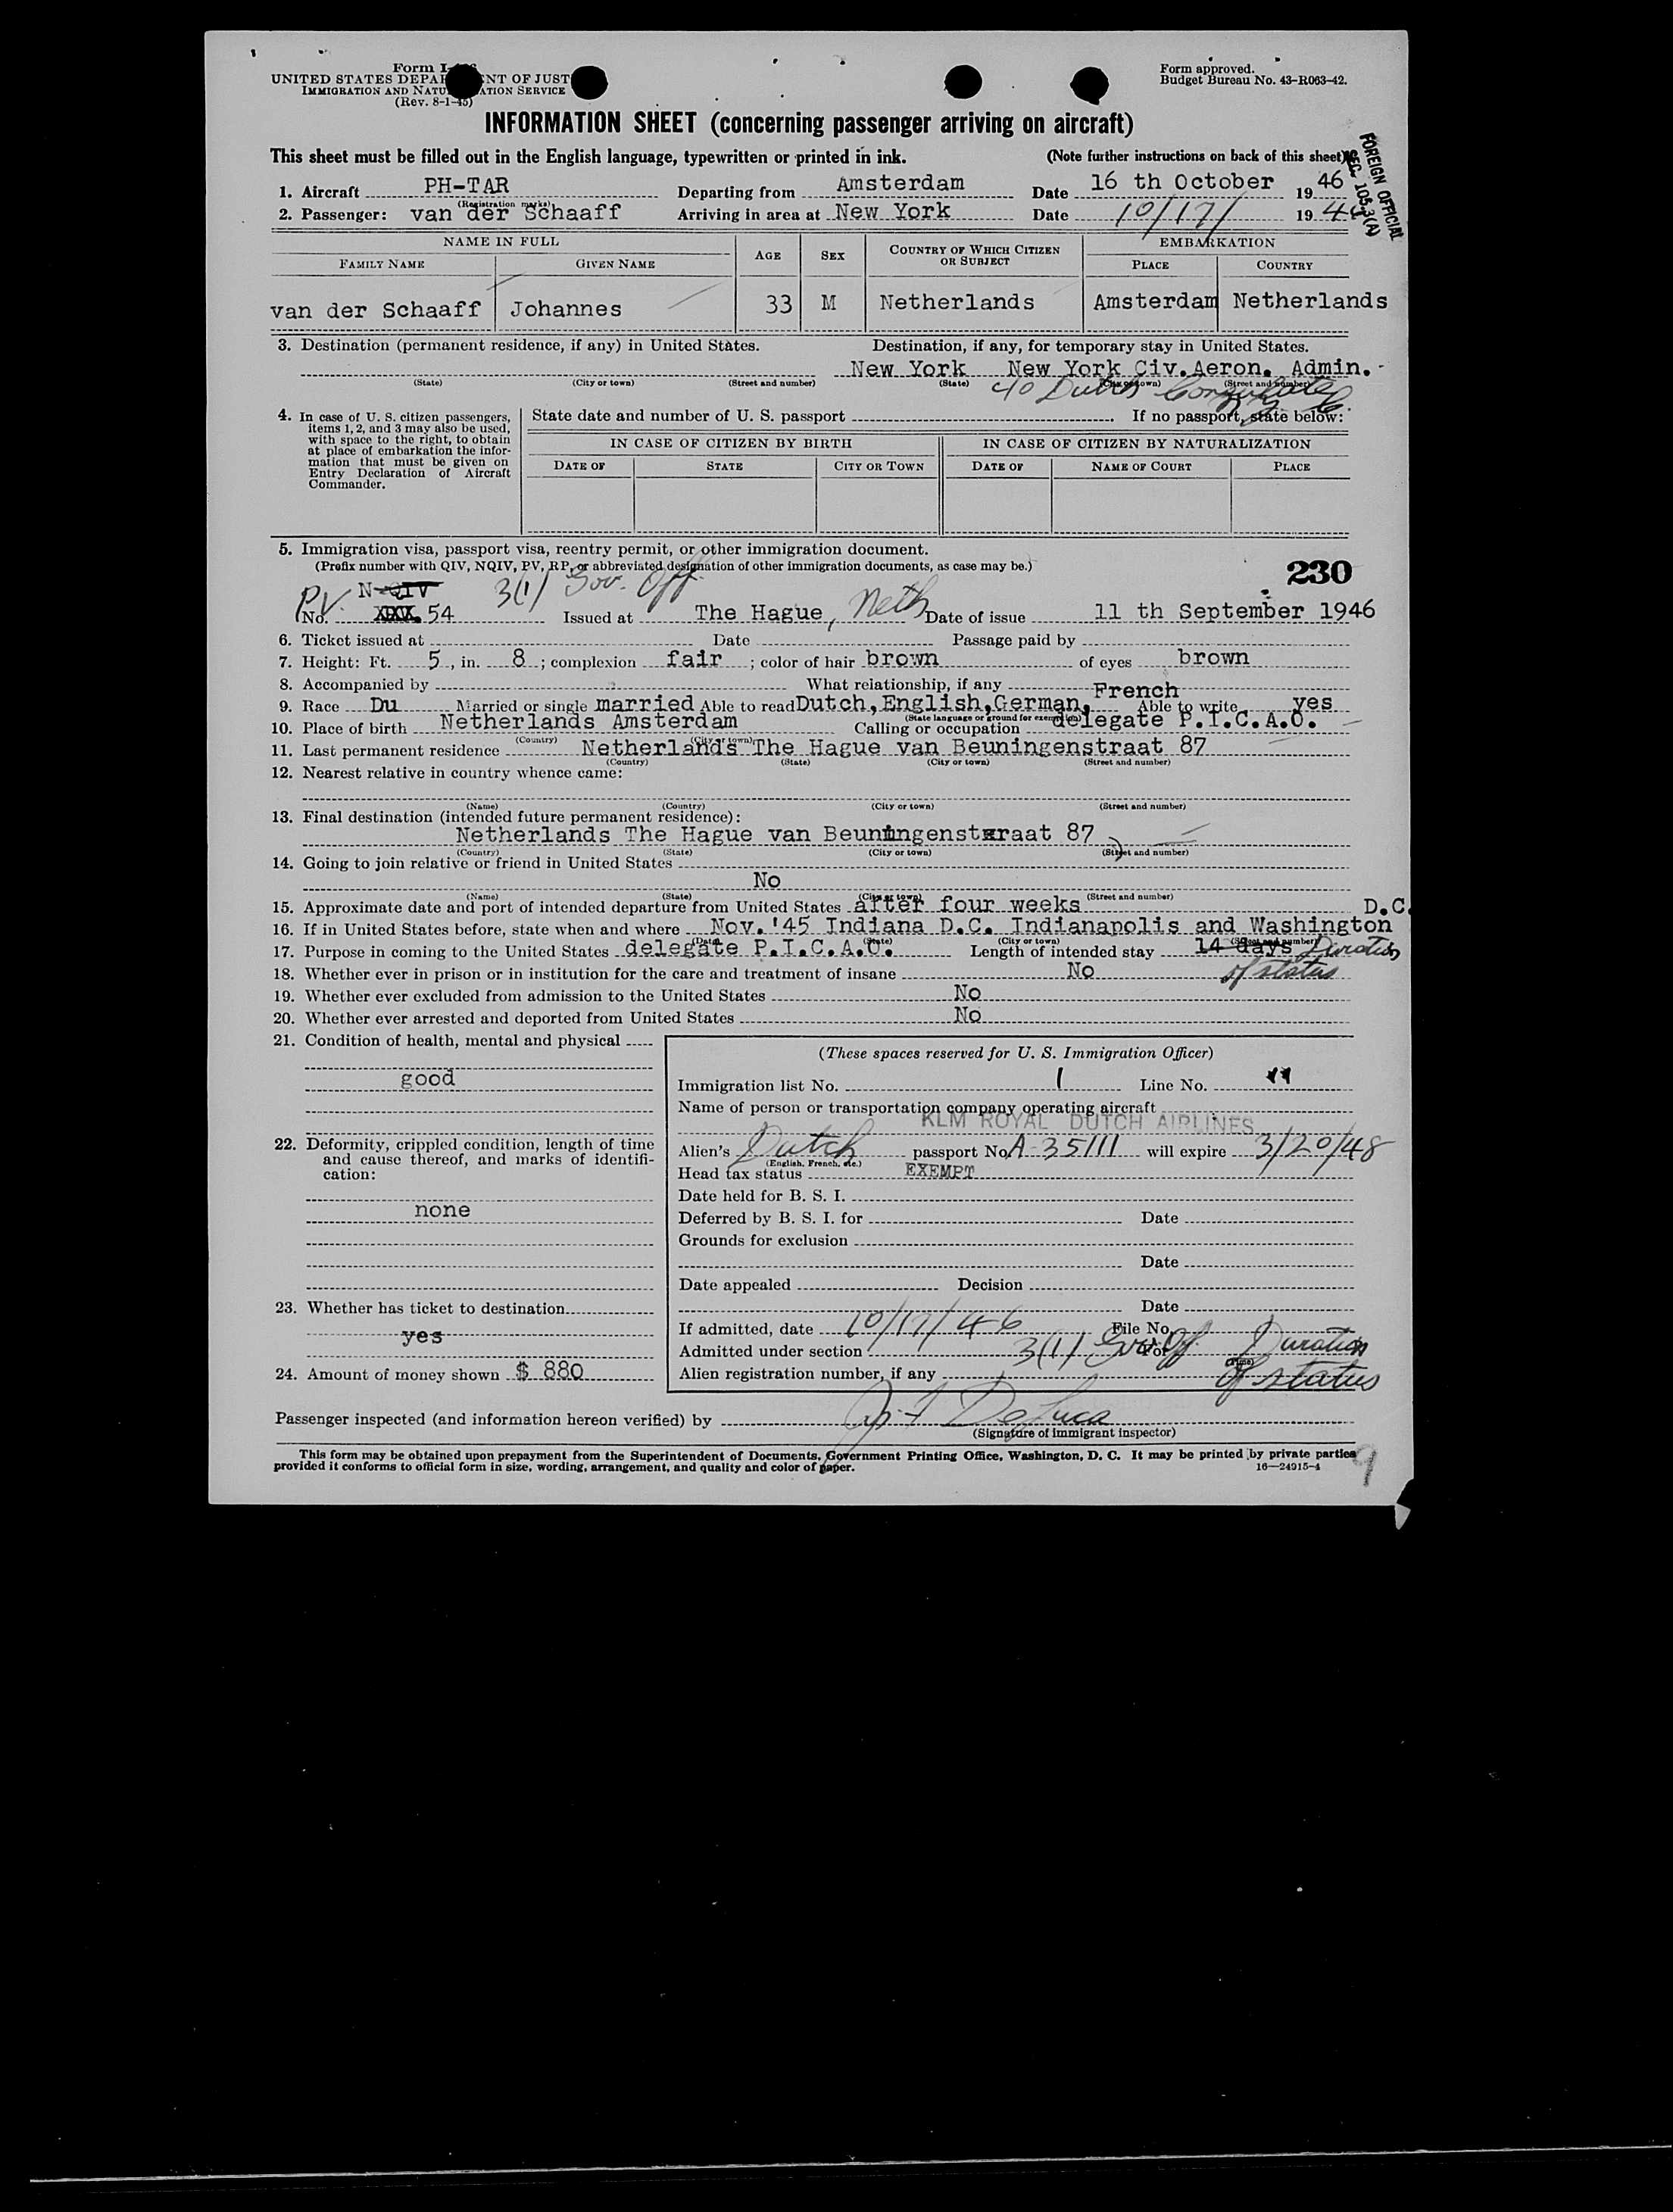 Form I-
UNITED STATES DEPAR NT OF JUST
IMMIGRATION AND NATU ATION SERVICE
(Rev. 8-1-45)
Form approved.
Budget Bureau No. 43-R063-42.
INFORMATION SHEET (concerning passenger arriving on aircraft)
This sheet must be filled out in the English language, typewritten or printed in ink. (Note further instructions on back of this sheet)
FOREIGN OFFICIAL
SEC. 105.3(A)
1. Aircraft PH-TAR Departing from Amsterdam Date 16 th October 1946
(Registration marks)
2. Passenger: van der Schaaff Arriving in area at New York Date 10/17/ 194
NAME IN FULL AGE SEX COUNTRY OF WHICH CITIZEN OR SUBJECT EMBARKATION
FAMILY NAME GIVEN NAME PLACE COUNTRY
van der Schaaff Johannes 33 M Netherlands Amsterdam Netherlands
3. Destination (permanent residence, if any) in United States. Destination, if any, for temporary stay in United States.
New York New York Civ.Aeron. Admin.
(State) (City or town) (Street and number) (State) (City or town) (Street and number)
c/o Dutch Consulate
4. In case of U. S. citizen passengers, items 1, 2, and 3 may also be used, with space to the right, to obtain at place of embarkation the information that must be given on Entry Declaration of Aircraft Commander.
State date and number of U. S. passport If no passport, state below:
IN CASE OF CITIZEN BY BIRTH IN CASE OF CITIZEN BY NATURALIZATION
DATE OF STATE CITY OR TOWN DATE OF NAME OF COURT PLACE
5. Immigration visa, passport visa, reentry permit, or other immigration document.
(Prefix number with QIV, NQIV, PV, RP, or abbreviated designation of other immigration documents, as case may be.)
230
P.V. N-QIV 3(1) Gov. Off.
No. XXX. 54 Issued at The Hague, Neth Date of issue 11 th September 1946
6. Ticket issued at Date Passage paid by
7. Height: Ft. 5, in. 8; complexion fair; color of hair brown of eyes brown
8. Accompanied by What relationship, if any
French
9. Race Du Married or single married Able to read Dutch,English,German, Able to write yes
(State language or ground for exemption)
10. Place of birth Netherlands Amsterdam Calling or occupation delegate P.I.C.A.O.
(Country) (City or town)
11. Last permanent residence Netherlands The Hague van Beuningenstraat 87
(Country) (State) (City or town) (Street and number)
12. Nearest relative in country whence came:
(Name) (Country) (City or town) (Street and number)
13. Final destination (intended future permanent residence):
Netherlands The Hague van Beuningenstxraat 87
(Country) (State) (City or town) (Street and number)
14. Going to join relative or friend in United States
No
(Name) (State) (City or town) (Street and number)
15. Approximate date and port of intended departure from United States after four weeks
D.C.
16. If in United States before, state when and where Nov.'45 Indiana D.C. Indianapolis and Washington
(Date) (State) (City or town) (Street and number)
17. Purpose in coming to the United States delegate P.I.C.A.O. Length of intended stay 14 days Duration of status
18. Whether ever in prison or in institution for the care and treatment of insane No
19. Whether ever excluded from admission to the United States No
20. Whether ever arrested and deported from United States No
21. Condition of health, mental and physical
good
22. Deformity, crippled condition, length of time and cause thereof, and marks of identification:
none
23. Whether has ticket to destination
yes
24. Amount of money shown $ 880
(These spaces reserved for U. S. Immigration Officer)
Immigration list No. 1 Line No.
Name of person or transportation company operating aircraft
KLM ROYAL DUTCH AIRLINES
Alien's Dutch passport No. A-35111 will expire 3/20/48
(English, French, etc.)
Head tax status EXEMPT
Date held for B. S. I.
Deferred by B. S. I. for Date
Grounds for exclusion
Date
Date appealed Decision
Date
If admitted, date 10/17/46 File No.
Admitted under section 3(1) Gov Off. For Duration of status
(Time)
Alien registration number, if any
Passenger inspected (and information hereon verified) by De Luca
(Signature of immigrant inspector)
This form may be obtained upon prepayment from the Superintendent of Documents, Government Printing Office, Washington, D. C. It may be printed by private parties
provided it conforms to official form in size, wording, arrangement, and quality and color of paper. 16—24915-4
9